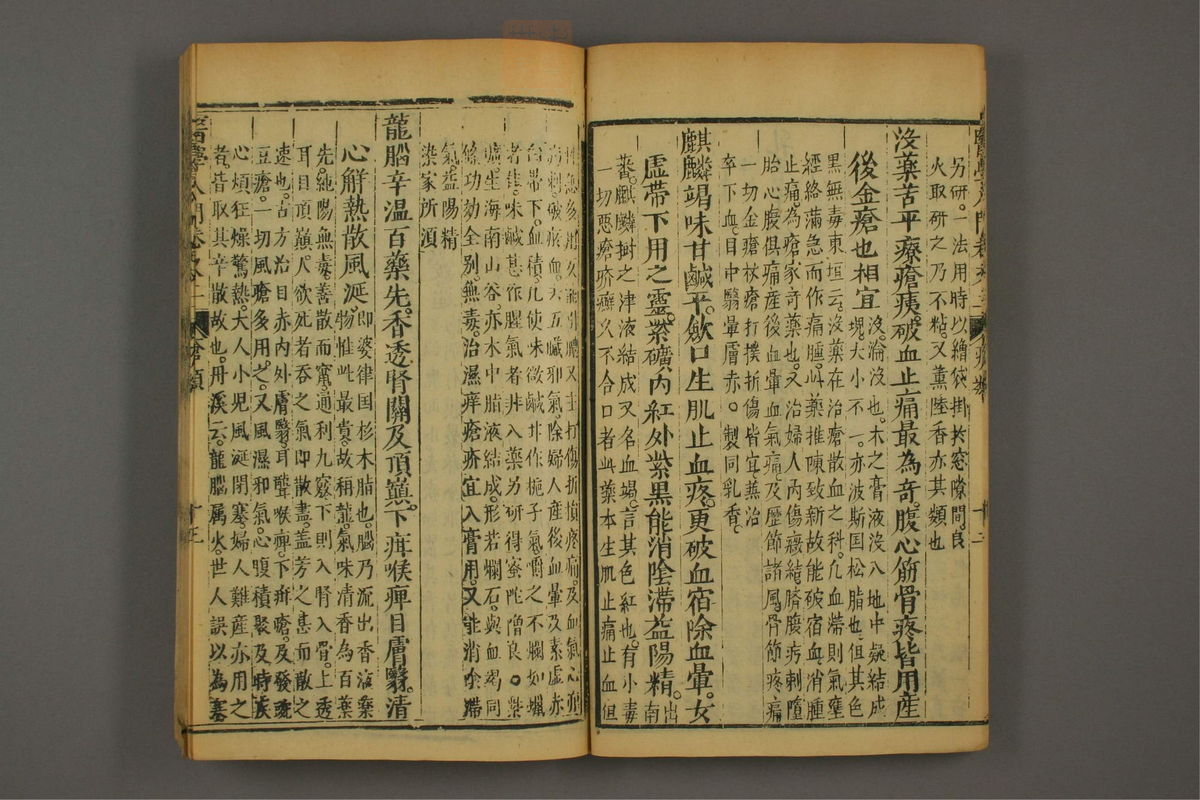 另研。一法用時以繒袋掛於窓隙間。良
火取研之乃不粘。又薰陸香亦其類也
沒藥苦平療瘡痍。破血止痛最為奇。腹心筋骨疼皆用産
後金瘡也相宜
沒淪沒也。木之膏液沒入地中凝結成
塊。大小不一。亦波斯国松脂也。但其色
黑無毒東垣云。沒藥在治瘡散血之科。凡血滯則氣壅
經絡滿急而作痛腫。此藥推陳致新故能破宿血消腫
止痛。為瘡家奇藥也。又治婦人內傷癥結臍腹疞刺墮
胎心腹俱痛産後血暈血氣痛。及歷節諸風骨節疼痛
一切金瘡杖瘡打撲折傷皆宜。兼治
卒下血。目中翳暈膚赤。製同乳香。
麒麟竭味甘鹹平。斂口生肌止血疼。更破血宿除血暈。女
虛帶下用之靈。紫礦內紅外紫黑能消陰滯益陽精。
出南
蕃。麒麟樹之津液結成又名血竭。言其色紅也。有小毒
一切惡瘡疥癬久不合口者此藥本生肌止痛止血但
性急多用久
又主打傷折損疼痛。及血氣心痛
五臟邪氣。除婦人産後血暈及素虛赤
白帶下。血積。凡使味微鹹甘作梔子氣。嚼之不爛如蠟
者佳。味鹹甚作腥氣者非入藥另研得蜜陀僧良。紫
礦。生海南山谷亦木中脂液結成。形若爛石。與血竭同
條功効全別。無毒。治濕痒瘡疥宜入膏用。又能消陰滯
氣。益陽精
染家所須
龍腦辛温百藥先。香透腎關及頂巔。下疳喉痺目膚翳。清
心解熱散風涎。
即婆律国杉木脂也。腦乃流出香液藥
物惟此最貴。故稱龍。氣味清香為百藥
先。純陽無毒。善散而竄。通利九竅下則入腎入骨。上透
耳目頂巔。人欲死者吞之氣即散盡。盖芳之甚而散之
速也。古方治目赤內外膚翳。耳聾喉痺。下疳瘡。及發
豆瘡。一切風瘡多用之。又風濕邪氣。心腹積聚及時疾
心煩狂燥驚熱。大人小児風涎閉塞。婦人難産亦用之
者。皆取其辛散故也。丹溪云。龍腦属火。世人誤以為寒